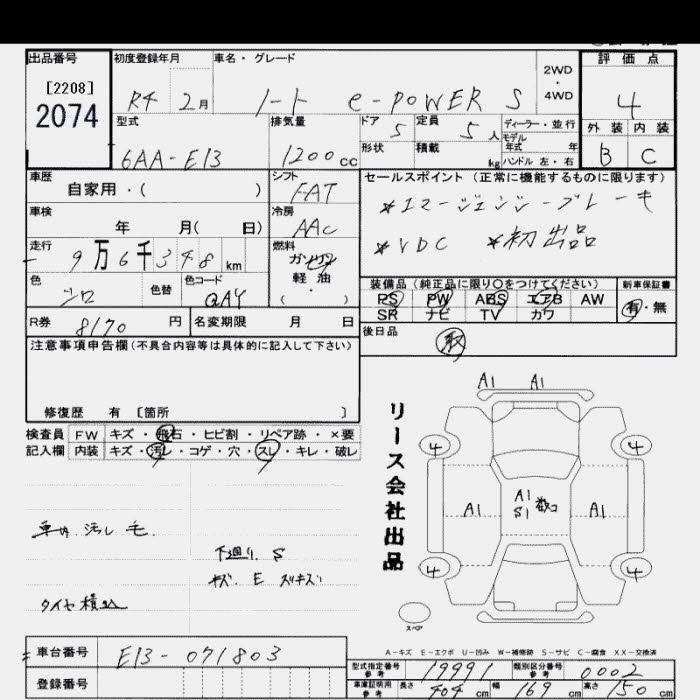 出品番号 初度登録年月 車名・グレード 評価点
[2208]
2074
R4 2月 ノート e-POWER S 2WD・4WD 4
型式 排気量 ドア 定員 ディーラー・並行 外装 内装
6AA-E13 1200cc 5 5人 モデル年式 年 B C
形状 積載 kg ハンドル 左・右
車歴 シフト セールスポイント (正常に機能するものに限ります)
自家用・( ) FAT
*エマージェンシーブレーキ
車検 年 月( 日) 冷房 AAC
*VDC *初出品
走行 9万6千348km 燃料 ガソリン 軽油 ・( )
色 シロ 色替 色コード QAY
装備品 (純正品に限り〇をつけてください) 新車保証書
PS PW ABS エアB AW 有・無
SR ナビ TV カワ
R券 8170円 名変期限 月 日
後日品 取
注意事項申告欄(不具合内容等は具体的に記入して下さい)
修復歴 有 [箇所 ]
検査員 FW キズ・飛石・ヒビ割・リペア跡・×要
記入欄 内装 キズ・汚レ・コゲ・穴・スレ・キレ・破レ
車内 汚し 毛
下廻り S
キズ E スリキズ
タイヤ積込
リース会社出品
A1 A1
4 4
A1 A1 S1 A1
4 4
スペア
A-キズ E-エクボ U-凹み W-補修跡 S-サビ C-腐食 XX-交換済
車台番号 E13-071803
登録番号
型式指定番号 参考 19991 類別区分番号 参考 0002
車庫証明用 参考 長さ 404cm 幅 169cm 高さ 150cm